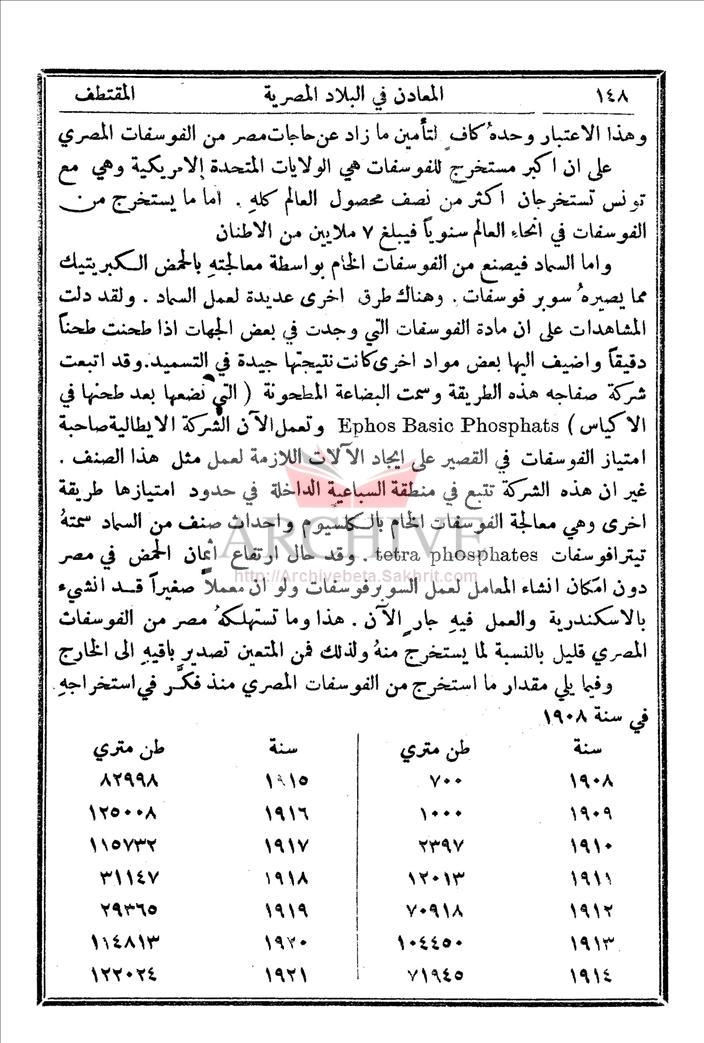 ١٤٨ المعادن في البلاد المصرية المقتطف
وهذا الاعتبار وحدهُ كافٍ لتأمين ما زاد عن حاجات مصر من الفوسفات المصري
على ان اكبر مستخرج للفوسفات هي الولايات المتحدة الامريكية وهي مع
تونس تستخرجان اكثر من نصف محصول العالم كلهِ . اما ما يستخرج من
الفوسفات في انحاء العالم سنوياً فيبلغ ٧ ملايين من الاطنان
واما السماد فيصنع من الفوسفات الخام بواسطة معالجتهِ بالحمض الكبريتيك
مما يصيرهُ سوبر فوسفات . وهناك طرق اخرى عديدة لعمل السماد . ولقد دلت
المشاهدات على ان مادة الفوسفات التي وجدت في بعض الجهات اذا طحنت طحناً
دقيقاً واضيف اليها بعض مواد اخرى كانت نتيجتها جيدة في التسميد . وقد اتبعت
شركة صفاجه هذه الطريقة وسمت البضاعة المطحونة ( التي تضعها بعد طحنها في
الاكياس ) Ephos Basic Phosphats وتعمل الآن الشركة الايطالية صاحبة
امتياز الفوسفات في القصير على ايجاد الآلات اللازمة لعمل مثل هذا الصنف .
غير ان هذه الشركة تتبع في منطقة السباعية الداخلة في حدود امتيازها طريقة
اخرى وهي معالجة الفوسفات الخام بالكلسيوم واحداث صنف من السماد سمتهُ
تيترافوسفات tetra phosphates . وقد حال ارتفاع أثمان الحمض في مصر
دون امكان انشاء المعامل لعمل السوبرفوسفات ولو ان معملاً صغيراً قد انشيء
بالاسكندرية والعمل فيهِ جارٍ الآن . هذا وما تستهلكهُ مصر من الفوسفات
المصري قليل بالنسبة لما يستخرج منهُ ولذلك فمن المتعين تصدير باقيهِ الى الخارج
وفيما يلي مقدار ما استخرج من الفوسفات المصري منذ فكَّر في استخراجهِ
في سنة ١٩٠٨
سنة طن متري سنة طن متري
١٩٠٨ ٧٠٠ ١٩١٥ ٨٢٩٩٨
١٩٠٩ ١٠٠٠ ١٩١٦ ١٢٥٠٠٨
١٩١٠ ٢٣٩٧ ١٩١٧ ١١٥٧٣٢
١٩١١ ١٢٠١٣ ١٩١٨ ٣١١٤٧
١٩١٢ ٧٠٩١٨ ١٩١٩ ٢٩٣٦٥
١٩١٣ ١٠٤٤٥٠ ١٩٢٠ ١١٤٨١٣
١٩١٤ ٧١٩٤٥ ١٩٢١ ١٢٢٠٢٤
ARCHIVE
http://Archivebeta.Sakhrit.com